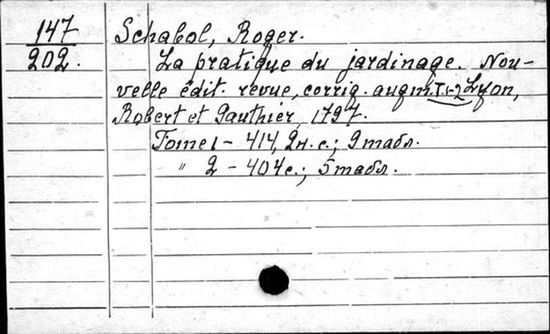 147 Schabol, Roger.
202. La pratique du jardinage. Nou-
velle édit. revue, corrig. augm. T.1-2 Lyon,
Robert et Gauthier, 1797.
Tome 1 - 414, 2н.с.; 9 табл.
" 2 - 404с.; 5 табл.